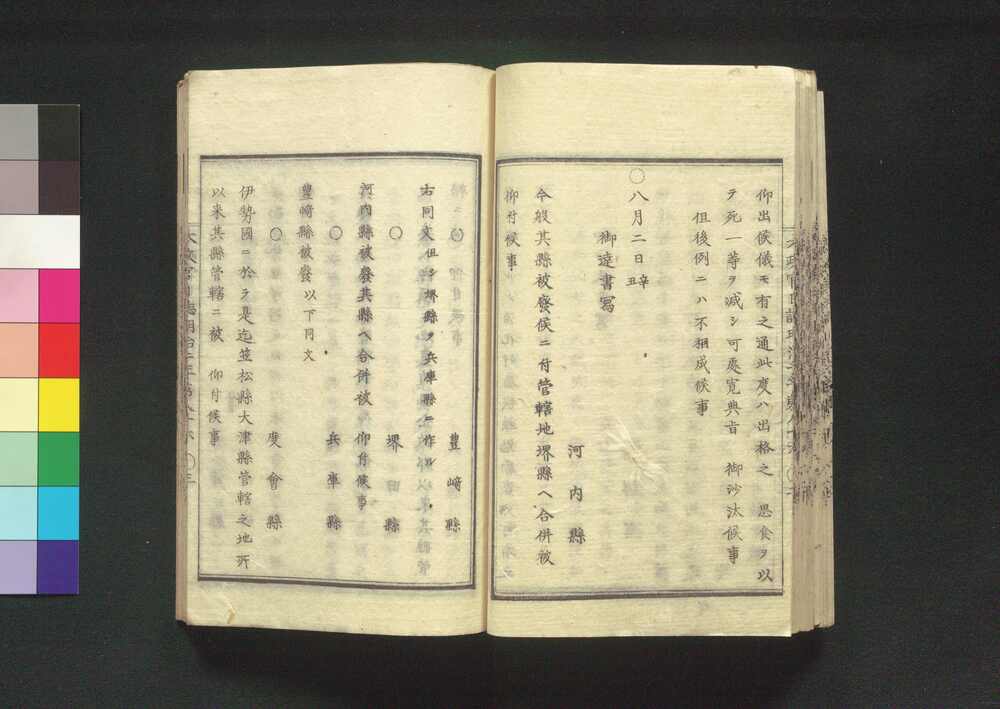 仰出候儀モ有之通此度ハ出格之　思食ヲ以
ヲ死一等ヲ減シ可處寛典旨　御沙汰候事
但後例ニハ不相成候事
〇八月二日辛丑
御達書寫
河内縣
今般其縣被廢候ニ付管轄地堺縣ヘ合併被
仰付候事
〇
豊﨑縣
右同文但シ堺縣ヲ兵庫縣ニ作ル
〇
堺縣
河内縣被廢其縣ヘ合併被　仰付候事
〇
兵庫縣
豊﨑縣被廢以下同文
〇
度會縣
伊勢國ニ於テ是迄笠松縣大津縣管轄之地所
以来其縣管轄ニ被　仰付候事